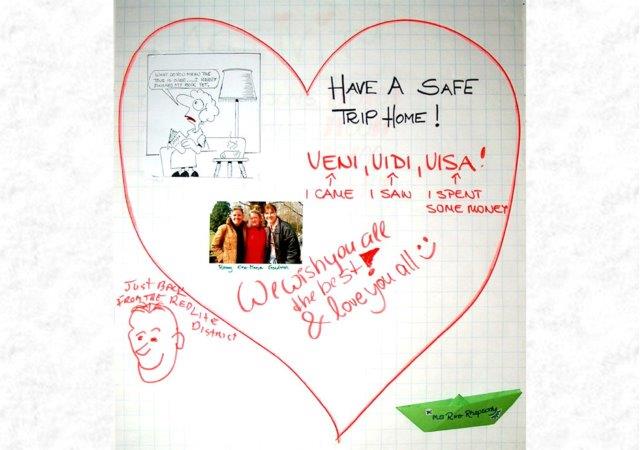 WHAT DO YOU MEAN THE
TOUR IS OVER....I HAVEN'T
FINISHED MY BOOK YET.
HAVE A SAFE
TRIP HOME!
VENI, VIDI, VISA!
I CAME I SAW I SPENT
SOME MONEY
We wish you all
the best!
& love you all
JUST BACK
FROM THE RED LITE
DISTRICT
MS River Rhapsody